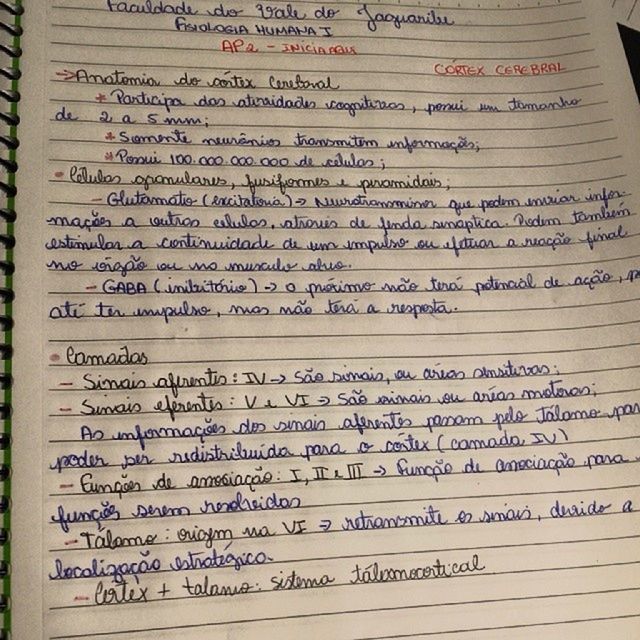 Faculdade do Vale do Jaguaribe
FISIOLOGIA HUMANA I
AP2 - INICIAIS
CÓRTEX CEREBRAL
→ Anatomia do córtex Cerebral
* Participa das atividades cognitivas, possui um tamanho
de 2 a 5 mm;
* Somente neurônios transmitem informações;
* Possui 100.000.000.000 de células;
• Células granulares, fusiformes e piramidais;
- Glutamato (excitatória) → Neurotransmissor que podem enviar infor-
mações a outras celulas, através de fenda sinaptica. Podem também
estimular a continuidade de um impulso ou efetuar a reação final
no órgão ou no musculo alvo.
- GABA (inibitório) → o próximo não terá potencial de ação, p
até ter impulso, mas não terá a resposta.
• Camadas
- Sinais aferentes: IV → São sinais, ou áreas sensitivas;
- Sinais eferentes: V e VI → São sinais ou áreas motoras;
As informações dos sinais aferentes passam pelo Tálamo par
poder ser redistribuída para o cortex (camada IV)
- Funções de associação: I, II e III → Função de associação para
funções serem resolvidas
- Tálamo: origem na VI → retransmite os sinais, devido a
localização estratégica.
- Córtex + talamo: sistema tálamocortical